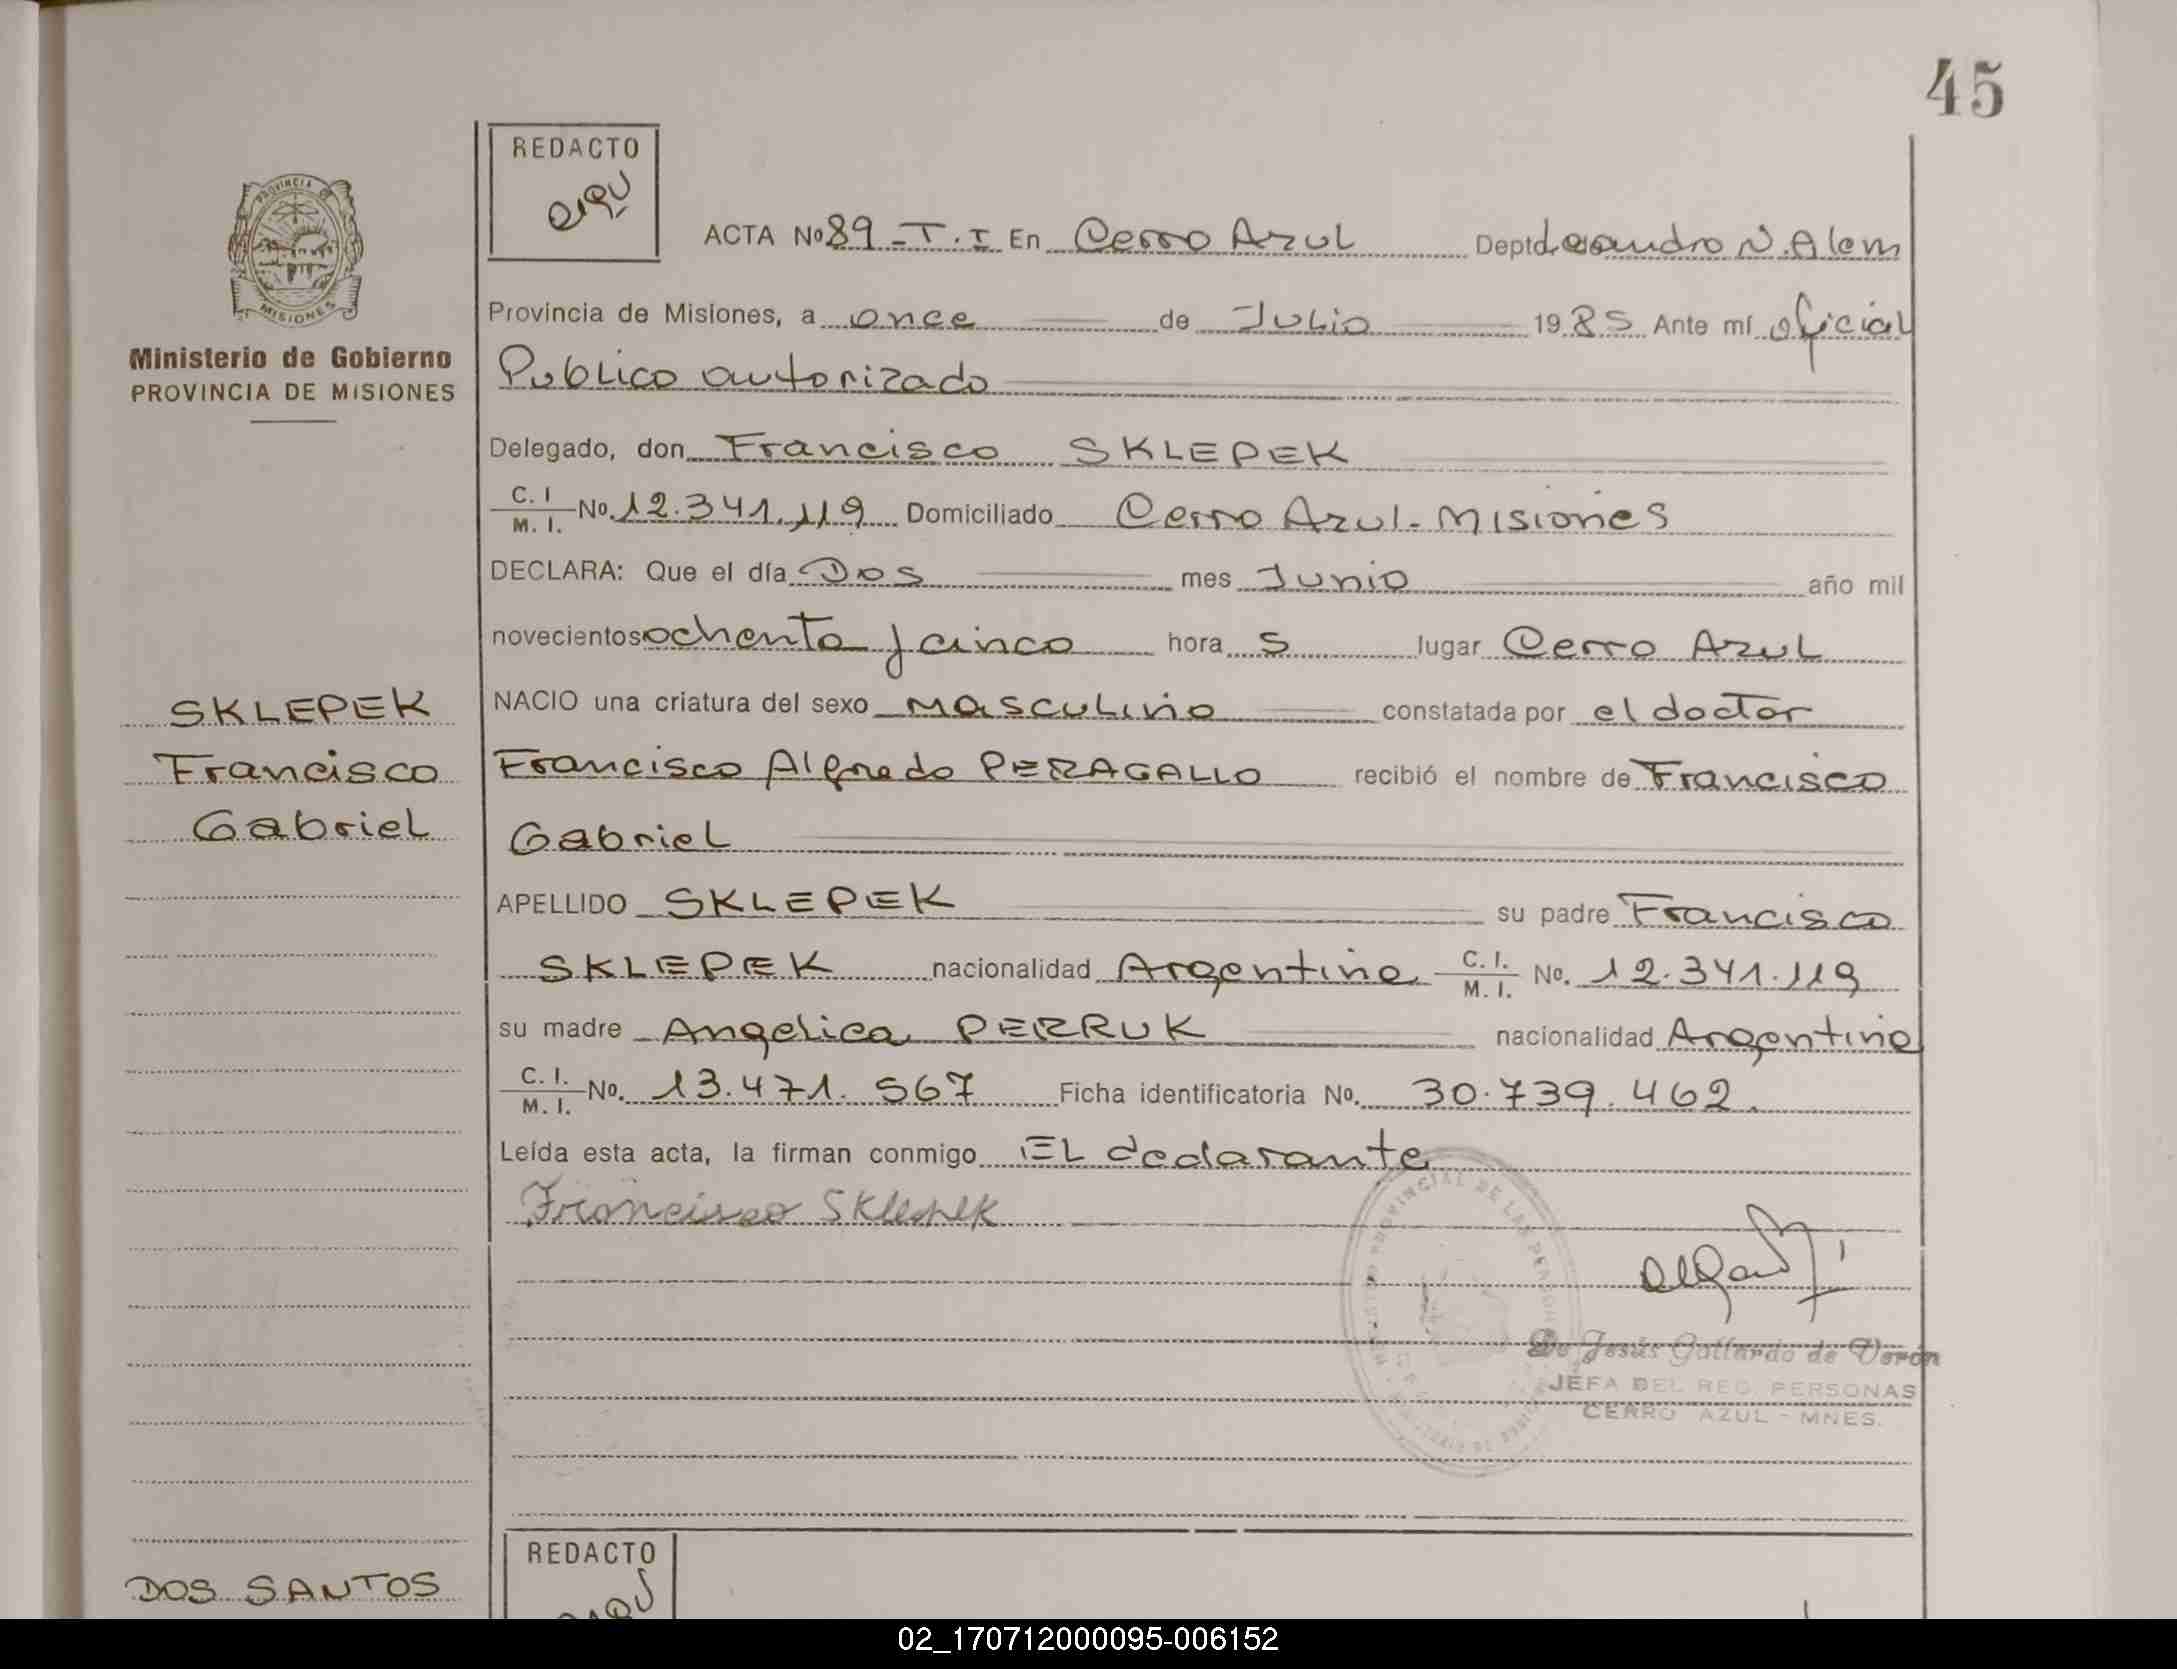 45
REDACTO
ACTA No 89 - T.I En Cerro Azul Depto Leandro N. Alem
PROVINCIA DE
MISIONES
Provincia de Misiones, a once de Julio 1985 Ante mí oficial
Ministerio de Gobierno
PROVINCIA DE MISIONES
Publico autorizado
Delegado, don Francisco SKLEPEK
C. I. / M. I. No. 12.341.119 Domiciliado Cerro Azul - Misiones
DECLARA: Que el día Dos mes Junio año mil
novecientos ochenta y cinco hora 5 lugar Cerro Azul
SKLEPEK
Francisco
Gabriel
NACIO una criatura del sexo masculino constatada por el doctor
Francisco Alfredo PERAGALLO recibió el nombre de Francisco
Gabriel
APELLIDO SKLEPEK su padre Francisco
SKLEPEK nacionalidad Argentina C. I. / M. I. No. 12.341.119
su madre Angelica PERRUK nacionalidad Argentina
C. I. / M. I. No. 13.471.567 Ficha identificatoria No. 30.739.462.
Leída esta acta, la firman conmigo EL declarante
Francisco Sklepek
De Jesús Gallardo de Verón
JEFA DEL REG. PERSONAS
CERRO AZUL - MNES.
REDACTO
DOS SANTOS
02_170712000095-006152